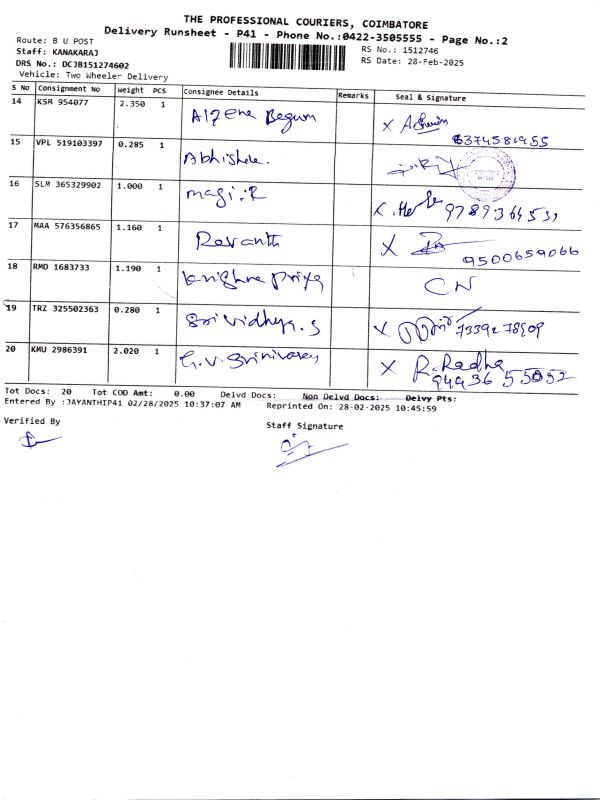 THE PROFESSIONAL COURIERS, COIMBATORE
Delivery Runsheet - P41 - Phone No.:0422-3505555 - Page No.:2
Route: B U POST
RS No.: 1512746
Staff: KANAKARAJ
RS Date: 28-Feb-2025
DRS No.: DCJB151274602
Vehicle: Two Wheeler Delivery
S No Consignment No Weight PCS Consignee Details Remarks Seal & Signature
14 KSM 954077 2.350 1 Begum X
6374581955
15 VPL 519103397 0.285 1
16 SLM 365329902 1.000 1 magi.R X
17 MAA 576356865 1.160 1 Revanth X
9500659066
18 RMD 1683733 1.190 1 Krishna Priya CN
19 TRZ 325502363 0.280 1 Srividhya.S X
20 KMU 2986391 2.020 1 G.V. Srinivasan X R.Radha
Tot Docs: 20 Tot COD Amt: 0.00 Delvd Docs: Non Delvd Docs: Delvy Pts:
Entered By :JAYANTHIP41 02/28/2025 10:37:07 AM Reprinted On: 28-02-2025 10:45:59
Verified By
Staff Signature